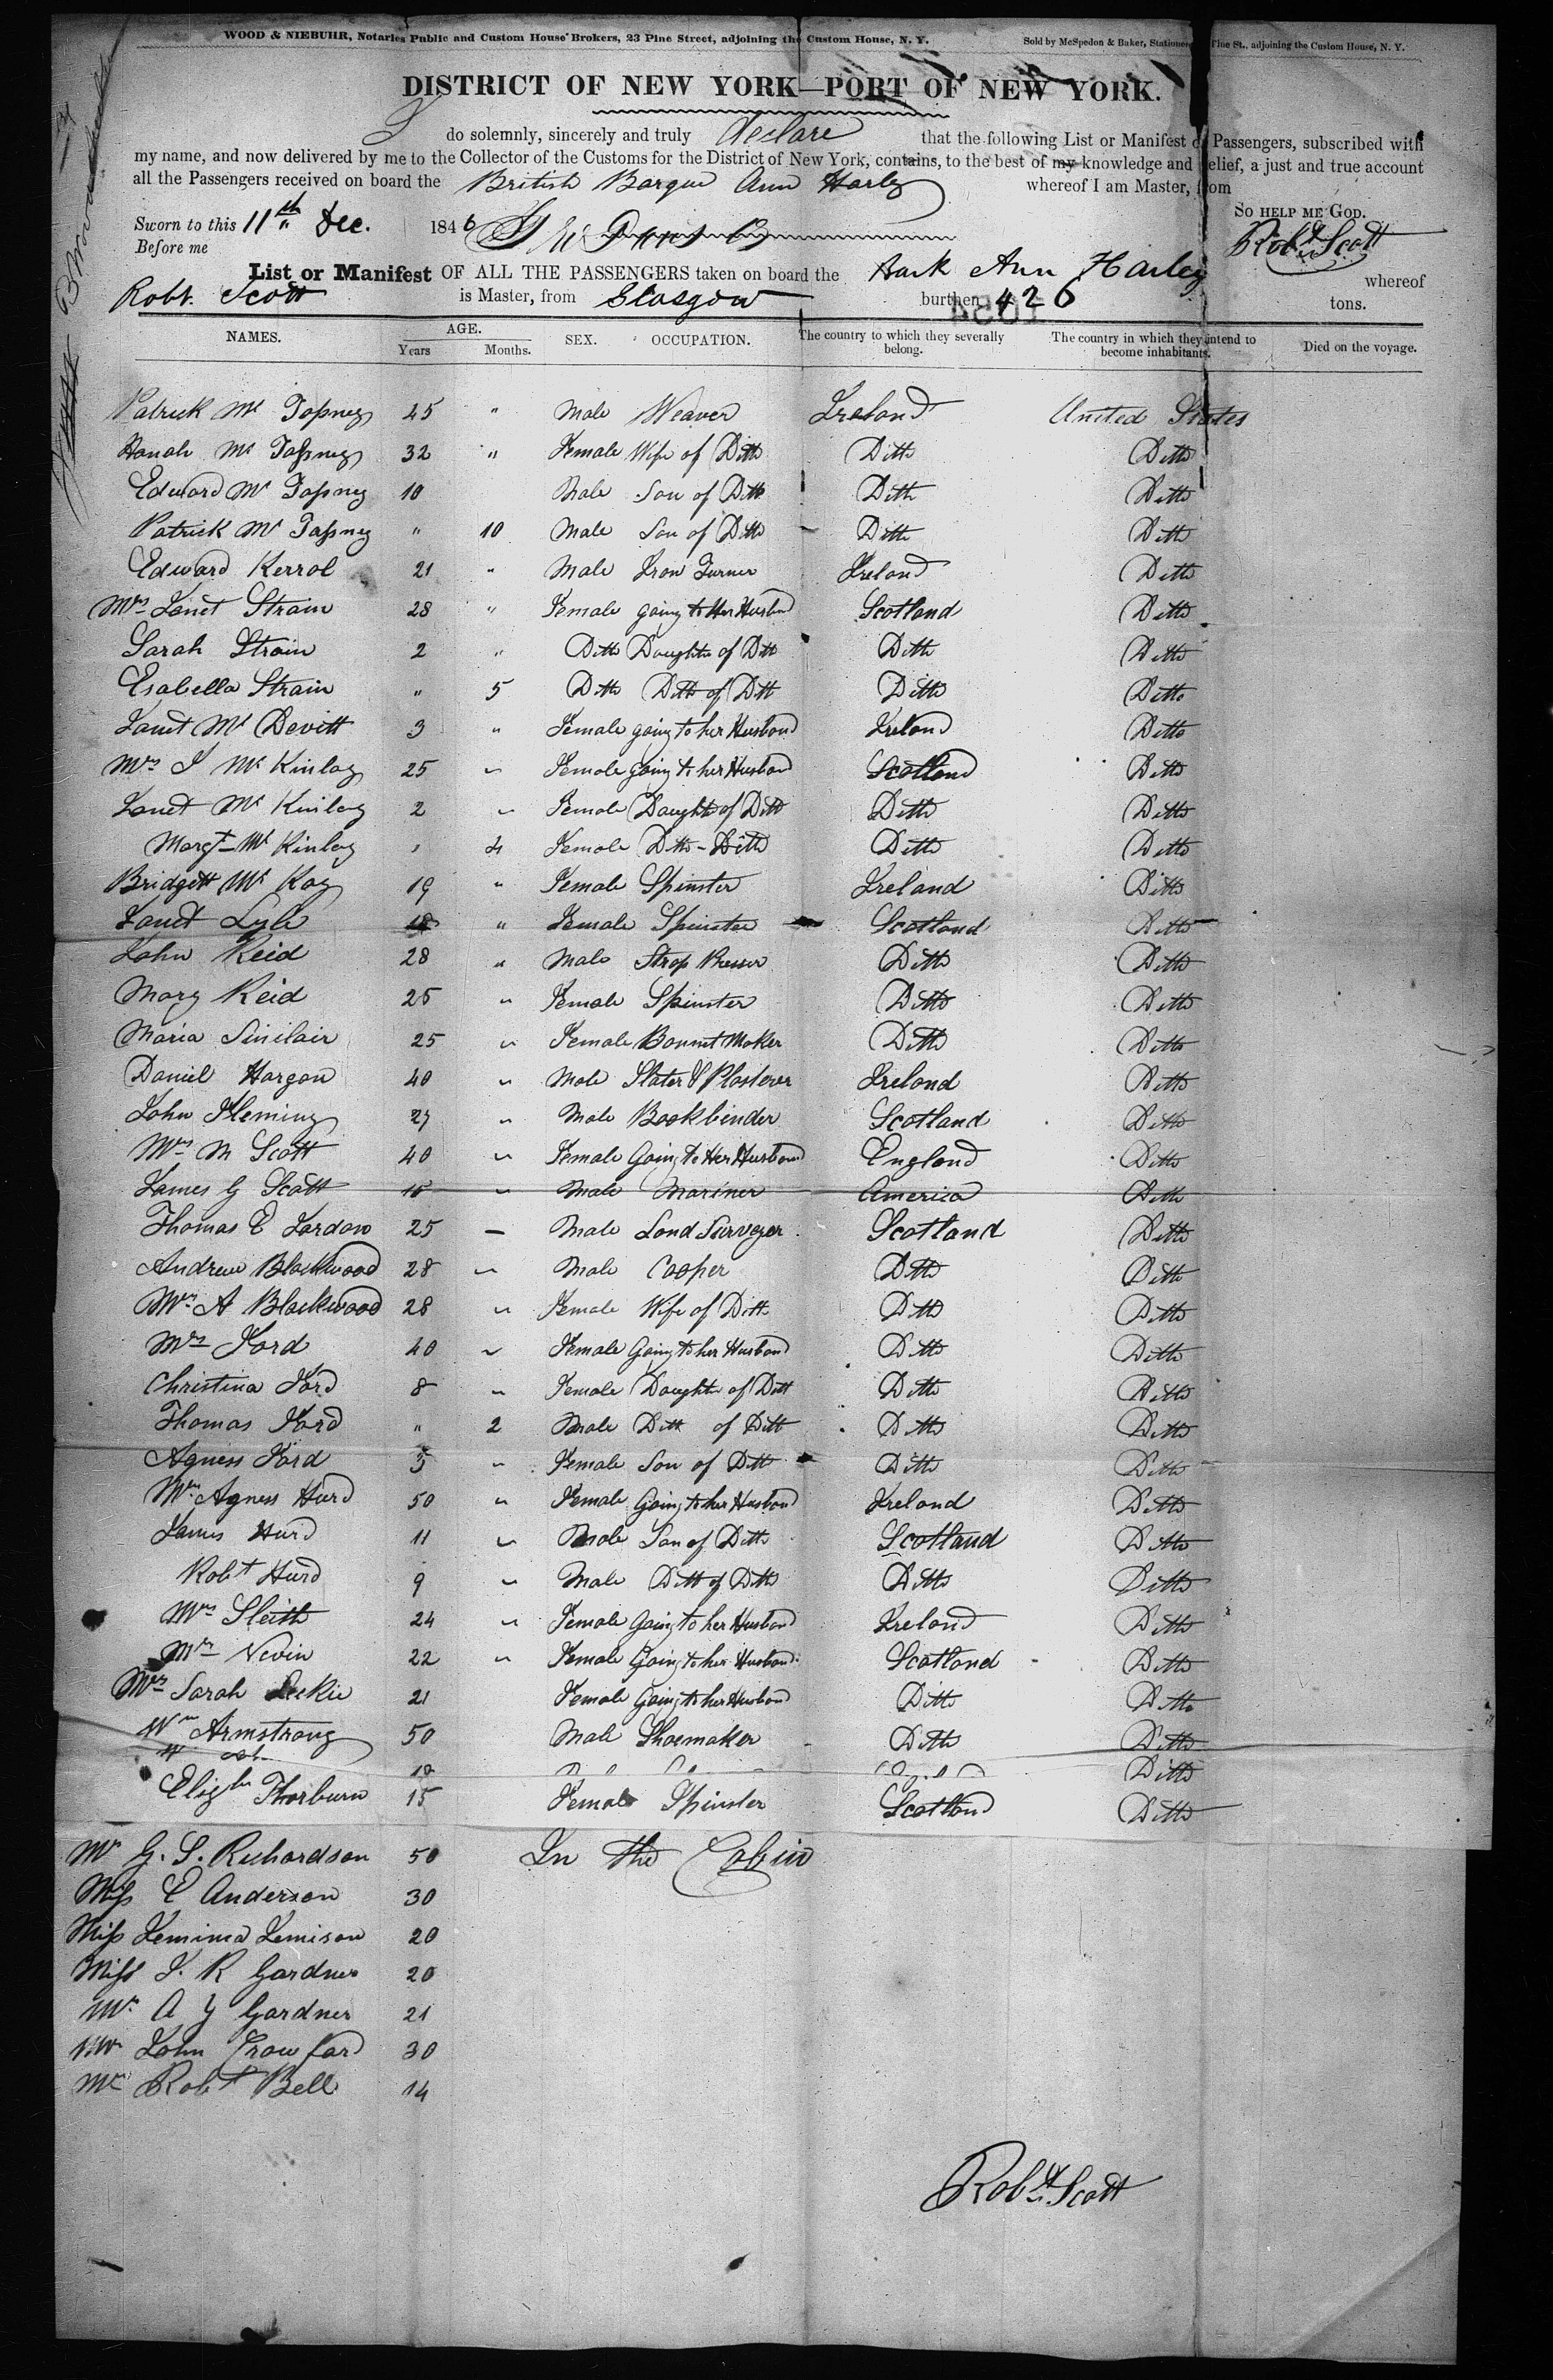 WOOD & NIEBUHR, Notaries Public and Custom House Brokers, 23 Pine Street, adjoining the Custom House, N. Y. Sold by McSpedon & Baker, Stationers Pine St., adjoining the Custom House, N. Y.
DISTRICT OF NEW YORK—PORT OF NEW YORK.
I do solemnly, sincerely and truly declare that the following List or Manifest of Passengers, subscribed with
my name, and now delivered by me to the Collector of the Customs for the District of New York, contains, to the best of my knowledge and belief, a just and true account
all the Passengers received on board the British Barque Ann Harley whereof I am Master, from
SO HELP ME GOD.
Sworn to this 11th Dec. 1846 Robt Scott
Before me
List or Manifest OF ALL THE PASSENGERS taken on board the Bark Ann Harley whereof
Robt. Scott is Master, from Glasgow burthen 426 tons.
NAMES. AGE. SEX. OCCUPATION. The country to which they severally belong. The country in which they intend to become inhabitants. Died on the voyage.
Years Months.
Patrick Mc 45 " Male Weaver Ireland United States
Hanah Mc 32 " Female Wife of Ditto Ditto Ditto
Edward Mc 10 Male Son of Ditto Ditto Ditto
Patrick Mc " 10 Male Son of Ditto Ditto Ditto
Edward Kerrol 21 " Male Iron Turner Ireland Ditto
Mrs Janet Strain 28 " Female going to Her Husband Scotland Ditto
Sarah Strain 2 " Ditto Daughter of Ditto Ditto Ditto
Esabella Strain " 5 Ditto Ditto of Ditt Ditto Ditto
Janet Mc Devitt 3 " Female going to her Husband Ireland Ditto
Mrs J Mc Kinlay 25 " Female going to her Husband Scotland Ditto
Janet Mc Kinlay 2 " Female Daughter of Ditto Ditto Ditto
Margt Mc Kinlay " 4 Female Ditto - Ditto Ditto Ditto
Bridgett Mc Kay 19 " Female Spinster Ireland Ditto
Janet Lyle 18 " Female Spinster Scotland Ditto
John Reid 28 " Male Strop Ditto Ditto
Mary Reid 25 " Female Spinster Ditto Ditto
Maria Sinclair 25 " Female Bonnet Maker Ditto Ditto
Daniel Hargan 40 " Male Slater & Plasterer Ireland Ditto
John Fleming 27 " Male Bookbinder Scotland Ditto
Mrs M Scott 40 " Female Going to Her Husband England Ditto
James G Scott 15 " Male Mariner America Ditto
Thomas E Jardan 25 — Male Land Surveyer Scotland Ditto
Andrew Blackwood 28 " Male Cooper Ditto Ditto
Mrs. A Blackwood 28 " Female Wife of Ditt Ditto Ditto
Mrs Ford 40 " Female Going to her Husband Ditto Ditto
Christina Ford 8 " Female Daughter of Ditt Ditto Ditto
Thomas Ford " 2 Male Ditt of Ditt Ditto Ditto
Agness Ford 5 " Female Son of Ditto Ditto Ditto
Mrs. Agness Hurd 50 " Female Going to her Husband Ireland Ditto
James Hurd 11 " Male Son of Ditto Scotland Ditto
Robt Hurd 9 " Male Ditt of Ditto Ditto Ditto
Mrs Sleith 24 " Female Going to her Husband Ireland Ditto
Mrs Nevin 22 " Female Going to her Husband Scotland Ditto
Mrs Sarah Leckie 21 Female Going to her Husband Ditto Ditto
Wm Armstrong 50 Male Shoemaker Ditto Ditto
Ditto
Elizth Thorburn 15 Female Spinster Scotland Ditto
Mr G. S. Richardson 50 In the Cabin
Miss E Anderson 30
Miss Jemima Jemison 20
Miss J. R Gardner 20
Mr. A Y Gardner 21
Mr John Crawford 30
Mr Robt Bell 14
Robt Scott